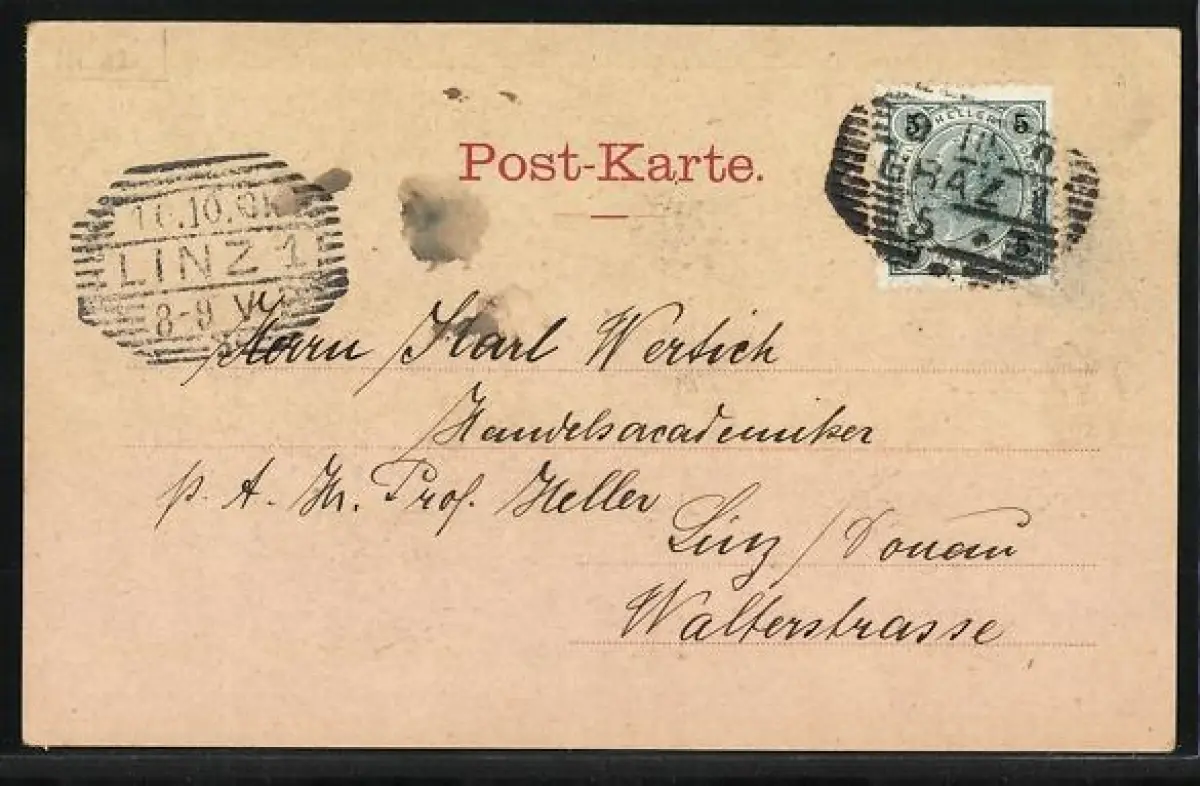 Post-Karte.
5 HELLER 5
5
GRAZ
LINZ 1
8-9 V
Herrn Karl Wertich
Handelsacademiker
p. A. Hr. Prof. Heller
Linz / Donau
Walterstrasse